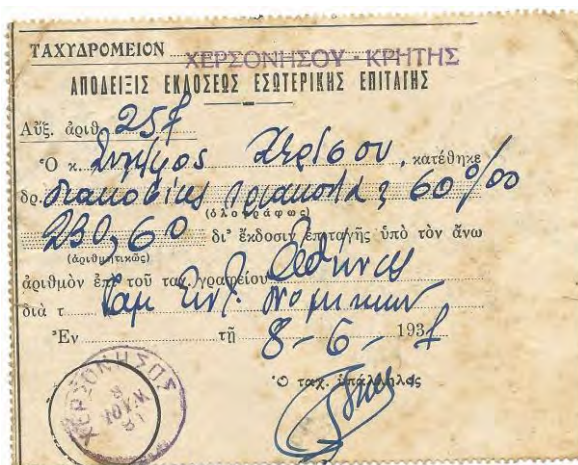 ΤΑΧΥΔΡΟΜΕΙΟΝ ΧΕΡΣΟΝΗΣΟΥ - ΚΡΗΤΗΣ
ΑΠΟΔΕΙΞΙΣ ΕΚΔΟΣΕΩΣ ΕΣΩΤΕΡΙΚΗΣ ΕΠΙΤΑΓΗΣ
Αὔξ. ἀριθ.
Ὁ κ. κατέθηκε
δρ. διακοσίας τριάκοντα 60%00
(ὁλογράφως)
230,60 δι' ἔκδοσιν ἐπιταγῆς ὑπὸ τὸν ἄνω
(ἀριθμητικῶς)
ἀριθμὸν ἐπὶ τοῦ ταχ. γραφείου Ἀθήνας
διὰ τ Ταμ. Συντ. Νομικῶν
Ἐν τῇ 8-6-193
Ὁ ταχ. ὑπάλληλος
ΧΕΡΣΟΝΗΣΟΣ
8
ΙΟΥΝ